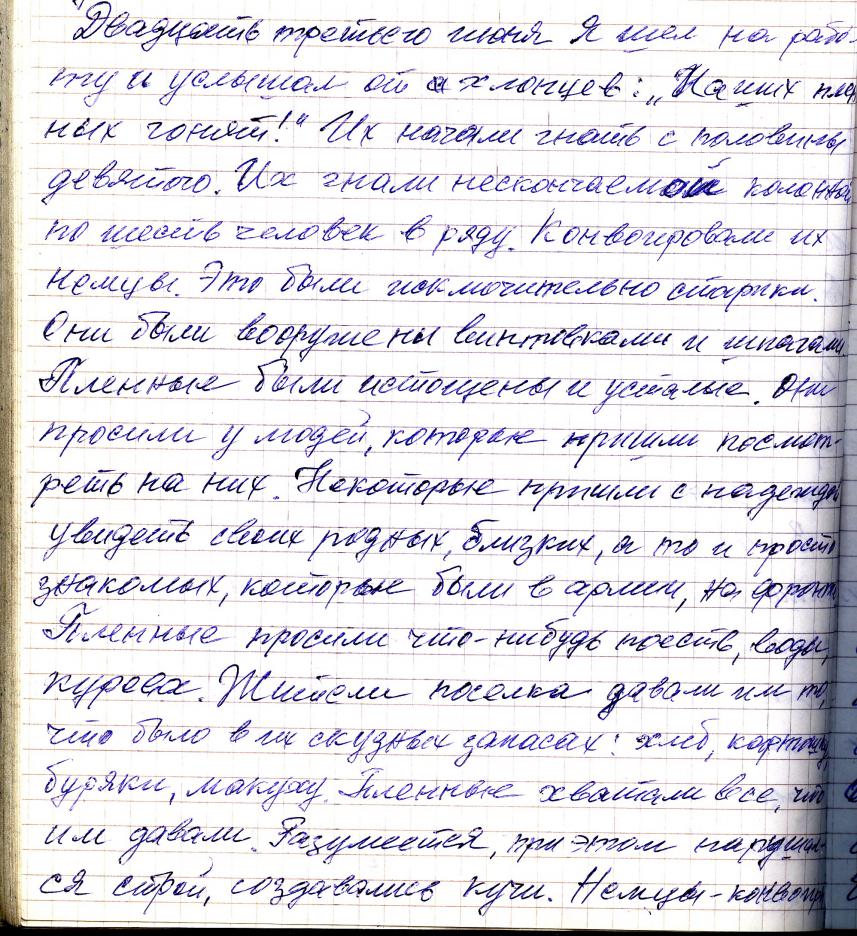 "Двадцать третьего июня я шел на рабо-
ту и услышал от хлопцев: „Наших плен
ных гонят!" Их начали гнать с половины
девятого. Их гнали нескончаемой колонной
по шесть человек в ряду. Конвоировали их
немцы. Это были исключительно старики.
Они были вооружены винтовками и шпагами.
Пленные были истощены и усталые. Они
просили у людей, которые пришли посмот-
реть на них. Некоторые пришли с надеждой
увидеть своих родных, близких, а то и просто
знакомых, которые были в армии, на фронте
Пленные просили что-нибудь поесть, воды,
курева. Жители поселка давали им то,
что было в их скудных запасах: хлеб, картошку,
буряки, макуху. Пленные хватали все, что
им давали. Разумеется, при этом нарушал-
ся строй, создавались кучи. Немцы-конвоир